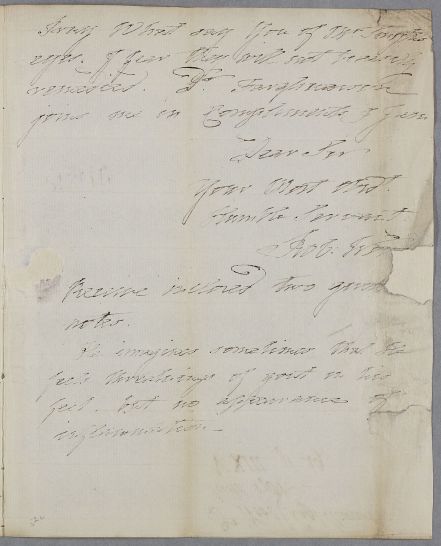 Pray What say You of Mr
eyes. I fear they will not be easily
remedied. Dr. Farquharson
joins me in Compliments & I am
Dear Sir
Your Most Obdt.
Humble Servant
Rob:
Receive inclosed two
notes.
He imagines sometimes that he
feels threatnings of gout in his
feet. but no appearance of
inflammation.